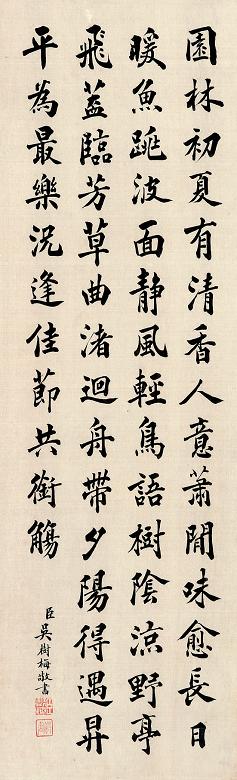 園林初夏有清香人意蕭閒味愈長日
暖魚跳波面靜風輕鳥語樹陰涼野亭
飛蓋臨芳草曲渚迴舟帶夕陽得遇昇
平為最樂況逢佳節共銜觴
臣吳樹梅敬書